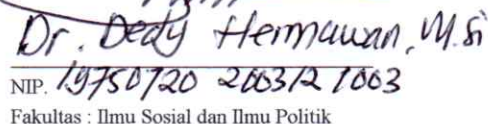 Dr. Dedy Hermawan, M.si
NIP. 19750720 200312 1003
Fakultas : Ilmu Sosial dan Ilmu Politik